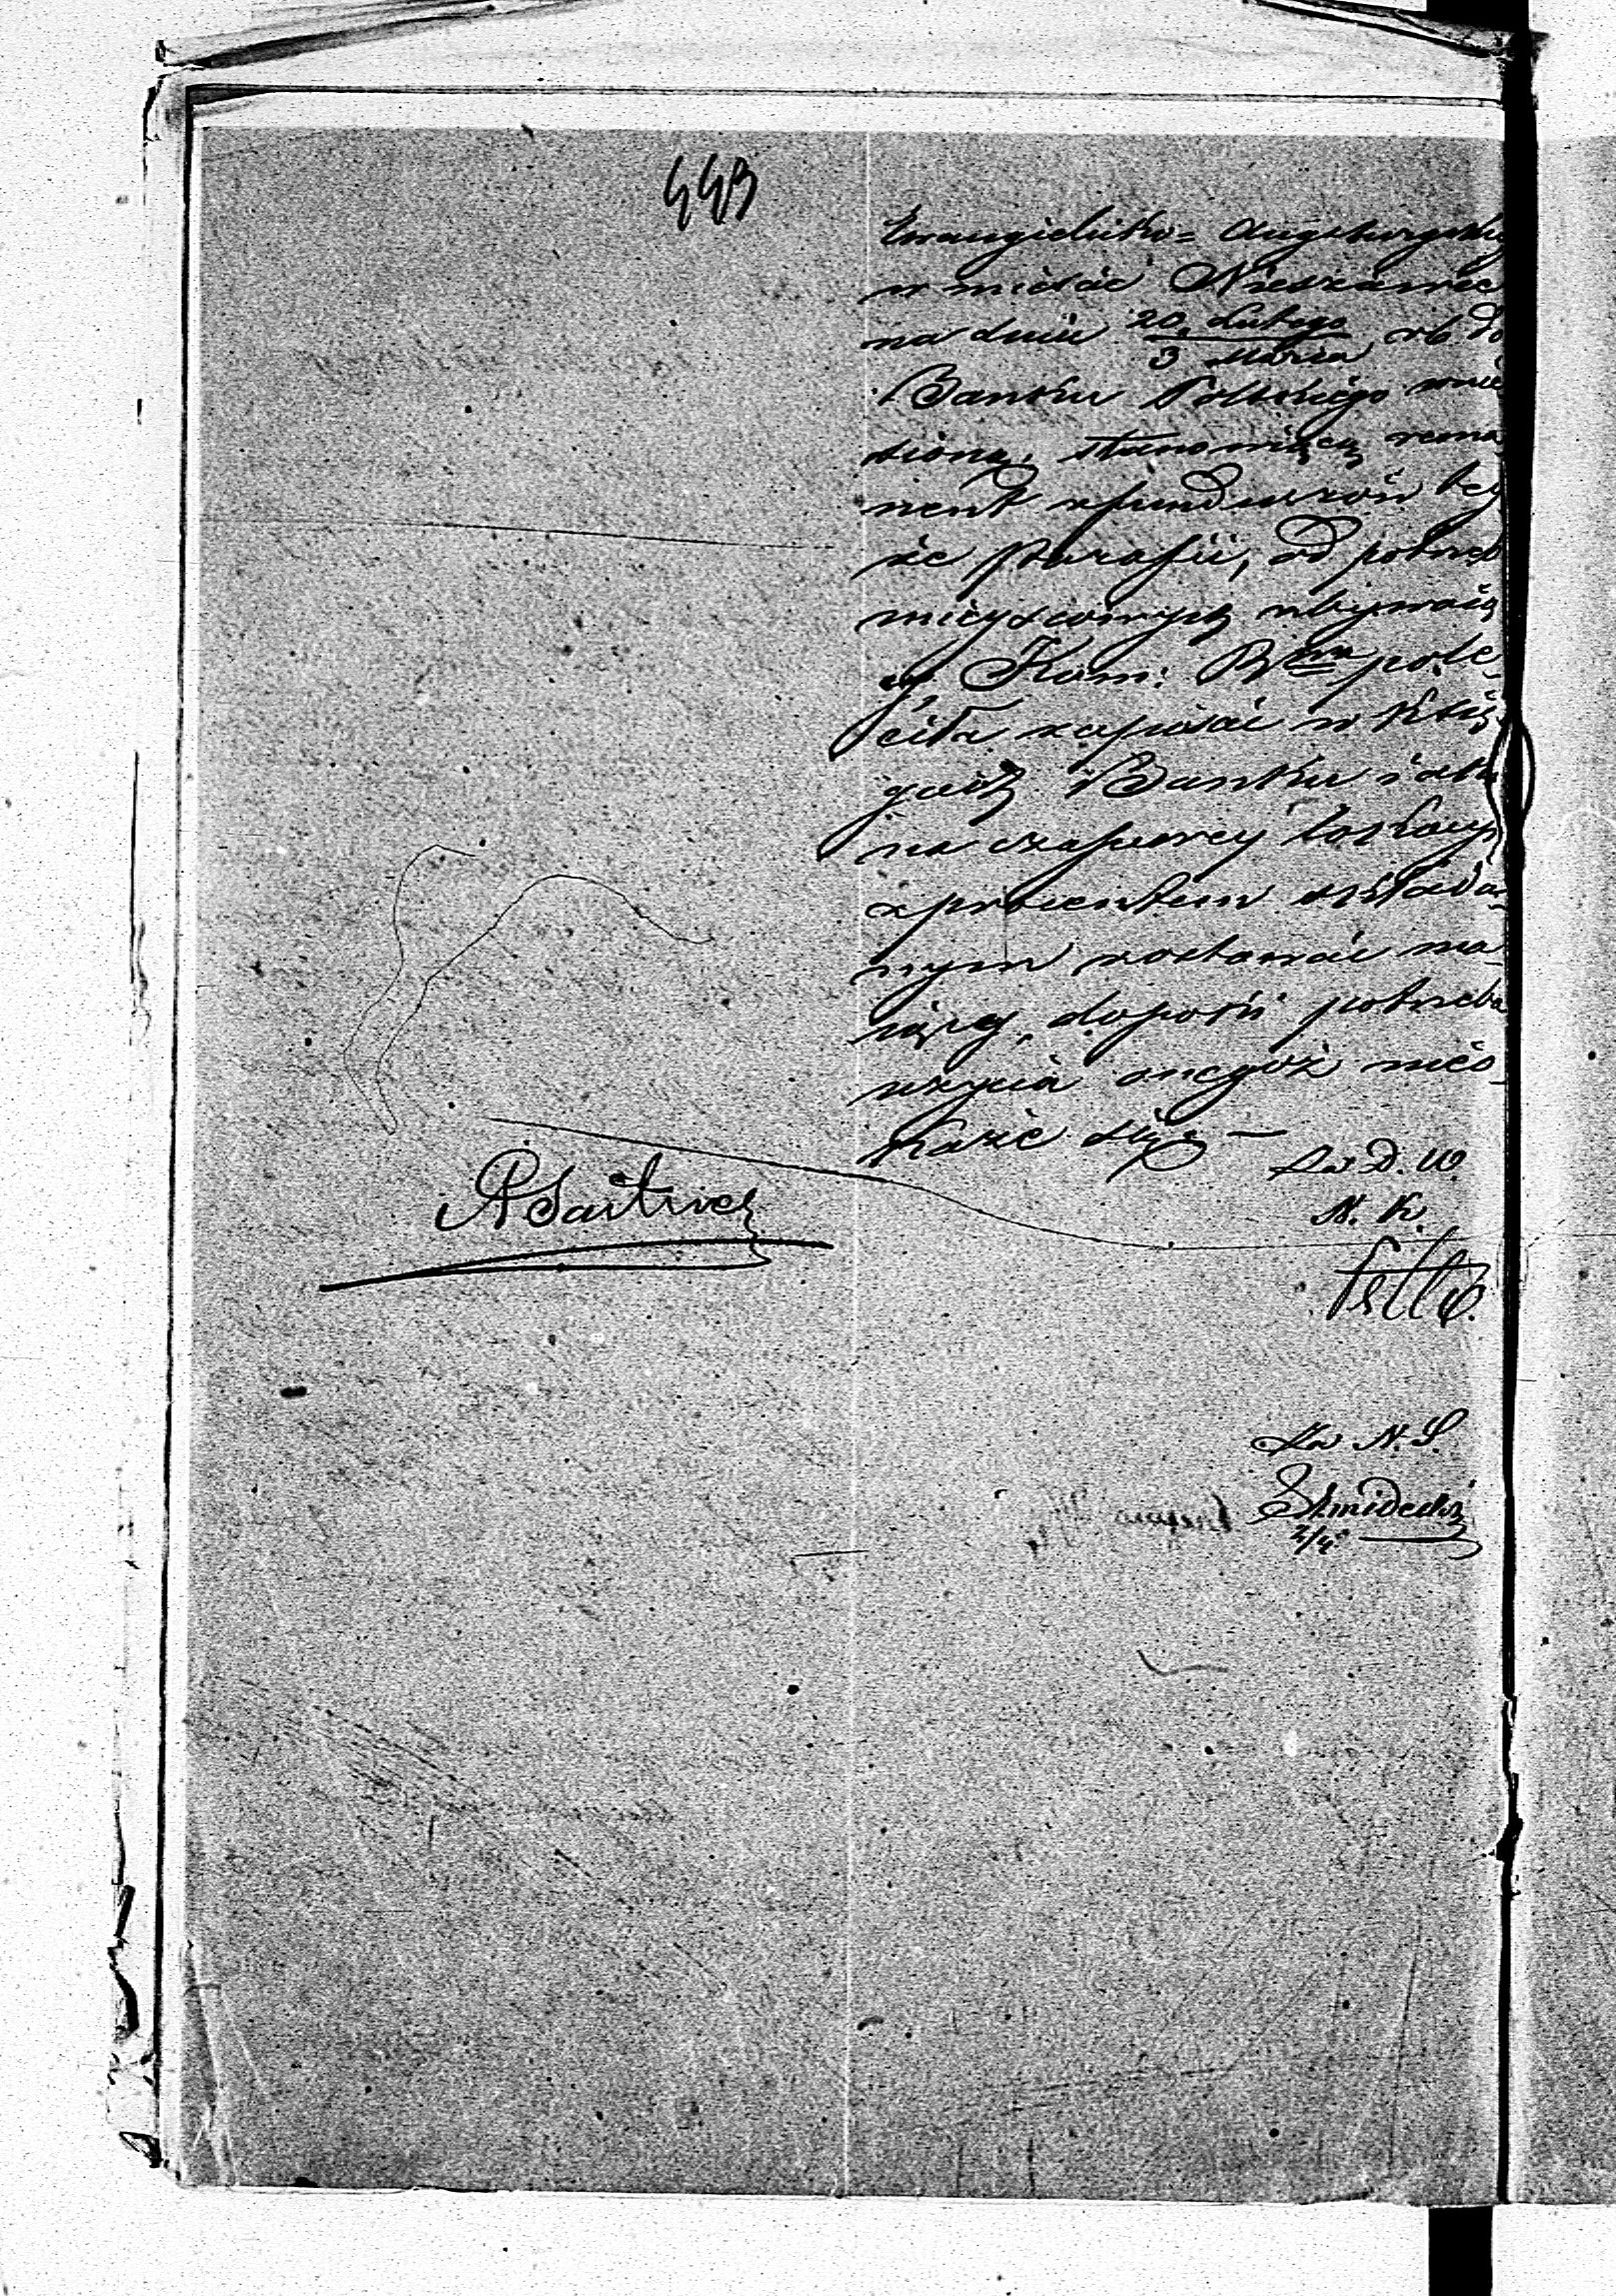 443
Ewangielicko= Augsburgską
w mieście Nieszawie
na dniu 20 Lutego rb do
3 Marca
Banku Polskiego wnie
sioną, stanowiącą rema
nent z funduszów tey
że Parafii, od potrzeb
mieyscowych zbywaią
cy, Kom: Rz. pole-
ciła zapisać w Xsię
gach Banku i
na czasowey lokacyi
z procentem składa-
nym zostawać ma-
iącą, dopóki potrzeba
użycia onegoż nieo-
każe się. —
Za D. W.
N. K.
Za N. S.
2/4